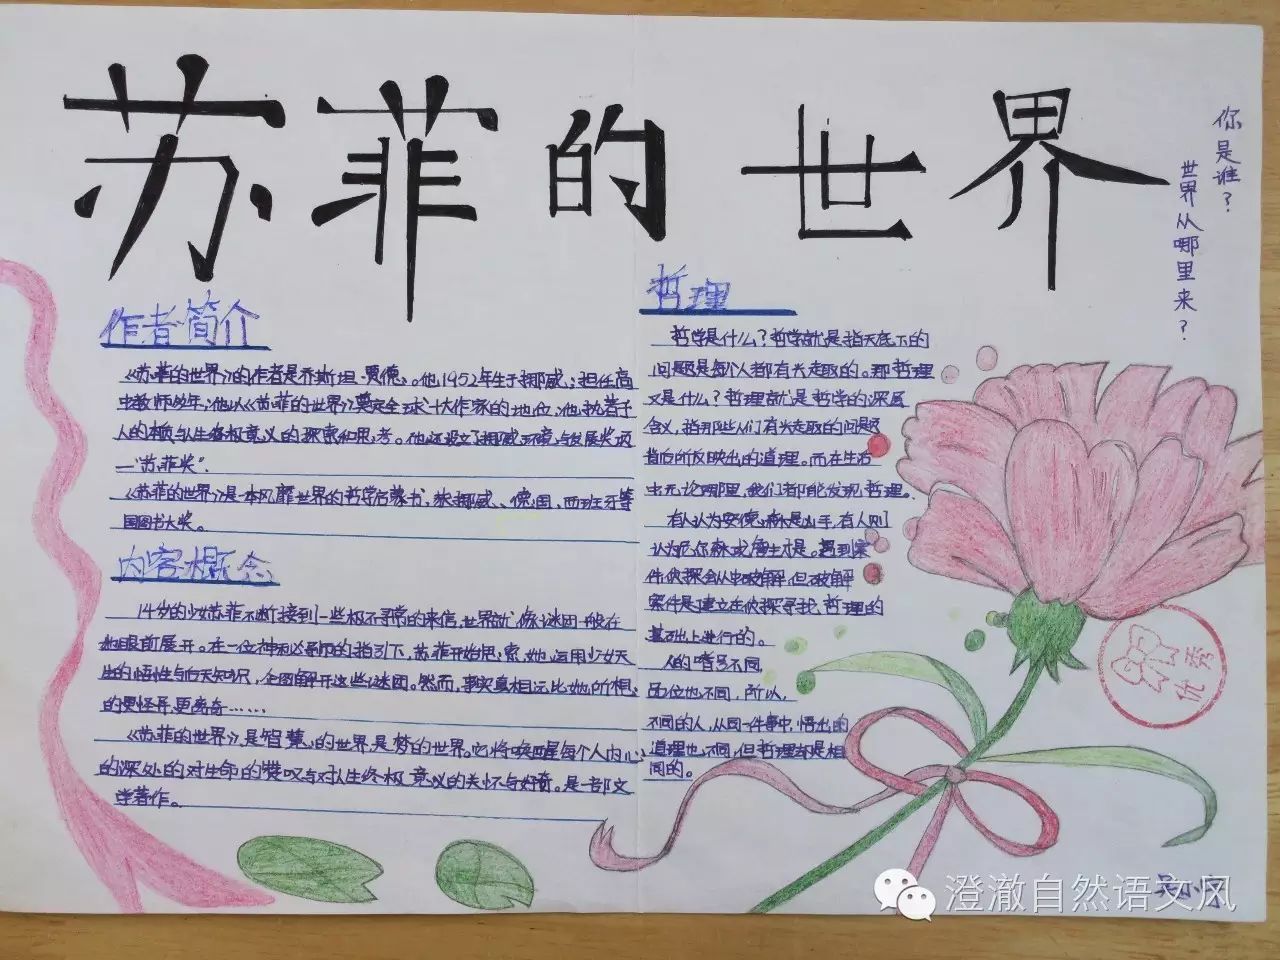 苏菲的世界
你是谁？
世界从哪里来？
作者简介
《苏菲的世界》的作者是乔斯坦·贾德。他1952年生于挪威，担任高
中教师多年，他以《苏菲的世界》奠定全球十大作家的地位，他执着于
人的 与人生终极意义的探索和思考。他还设立了挪威环境与发展奖项
—"苏菲奖"。
《苏菲的世界》是一本风靡世界的哲学启蒙书，获挪威、德国、西班牙等
国图书大奖。
内容概念
14岁的少女苏菲不断接到一些极不寻常的来信，世界就像谜团一般在
她眼前展开。在一位神秘导师的指引下，苏菲开始思索，她运用少女天
生的悟性与后天知识，企图解开这些谜团。然而，事实真相远比她所想
的更怪异、更离奇……
《苏菲的世界》是智慧的世界，是梦的世界。它将唤醒每个人内心
的深处的对生命的赞叹与对人生终极意义的关怀与好奇。是一部文
学著作。
哲理
哲学是什么？哲学就是指天底下的
问题是每个人都有兴趣取的。那哲理
又是什么？哲理就是哲学的深层
含义，指那些人们有兴趣取的问题
背后所反映出的道理。而在生活
中无论哪里，我们都能发现哲理。
有人认为安德 森是凶手，有人则
认为 才是。遇到案
件侦探会从中破解，但破解
案件是建立在侦探寻找哲理的
基础上进行的。
人的嗜号不同
品位也不同，所以，
不同的人，从同一件事中，悟出的
道理也不同，但哲理却是相
同的。
优秀
澄澈自然语文风